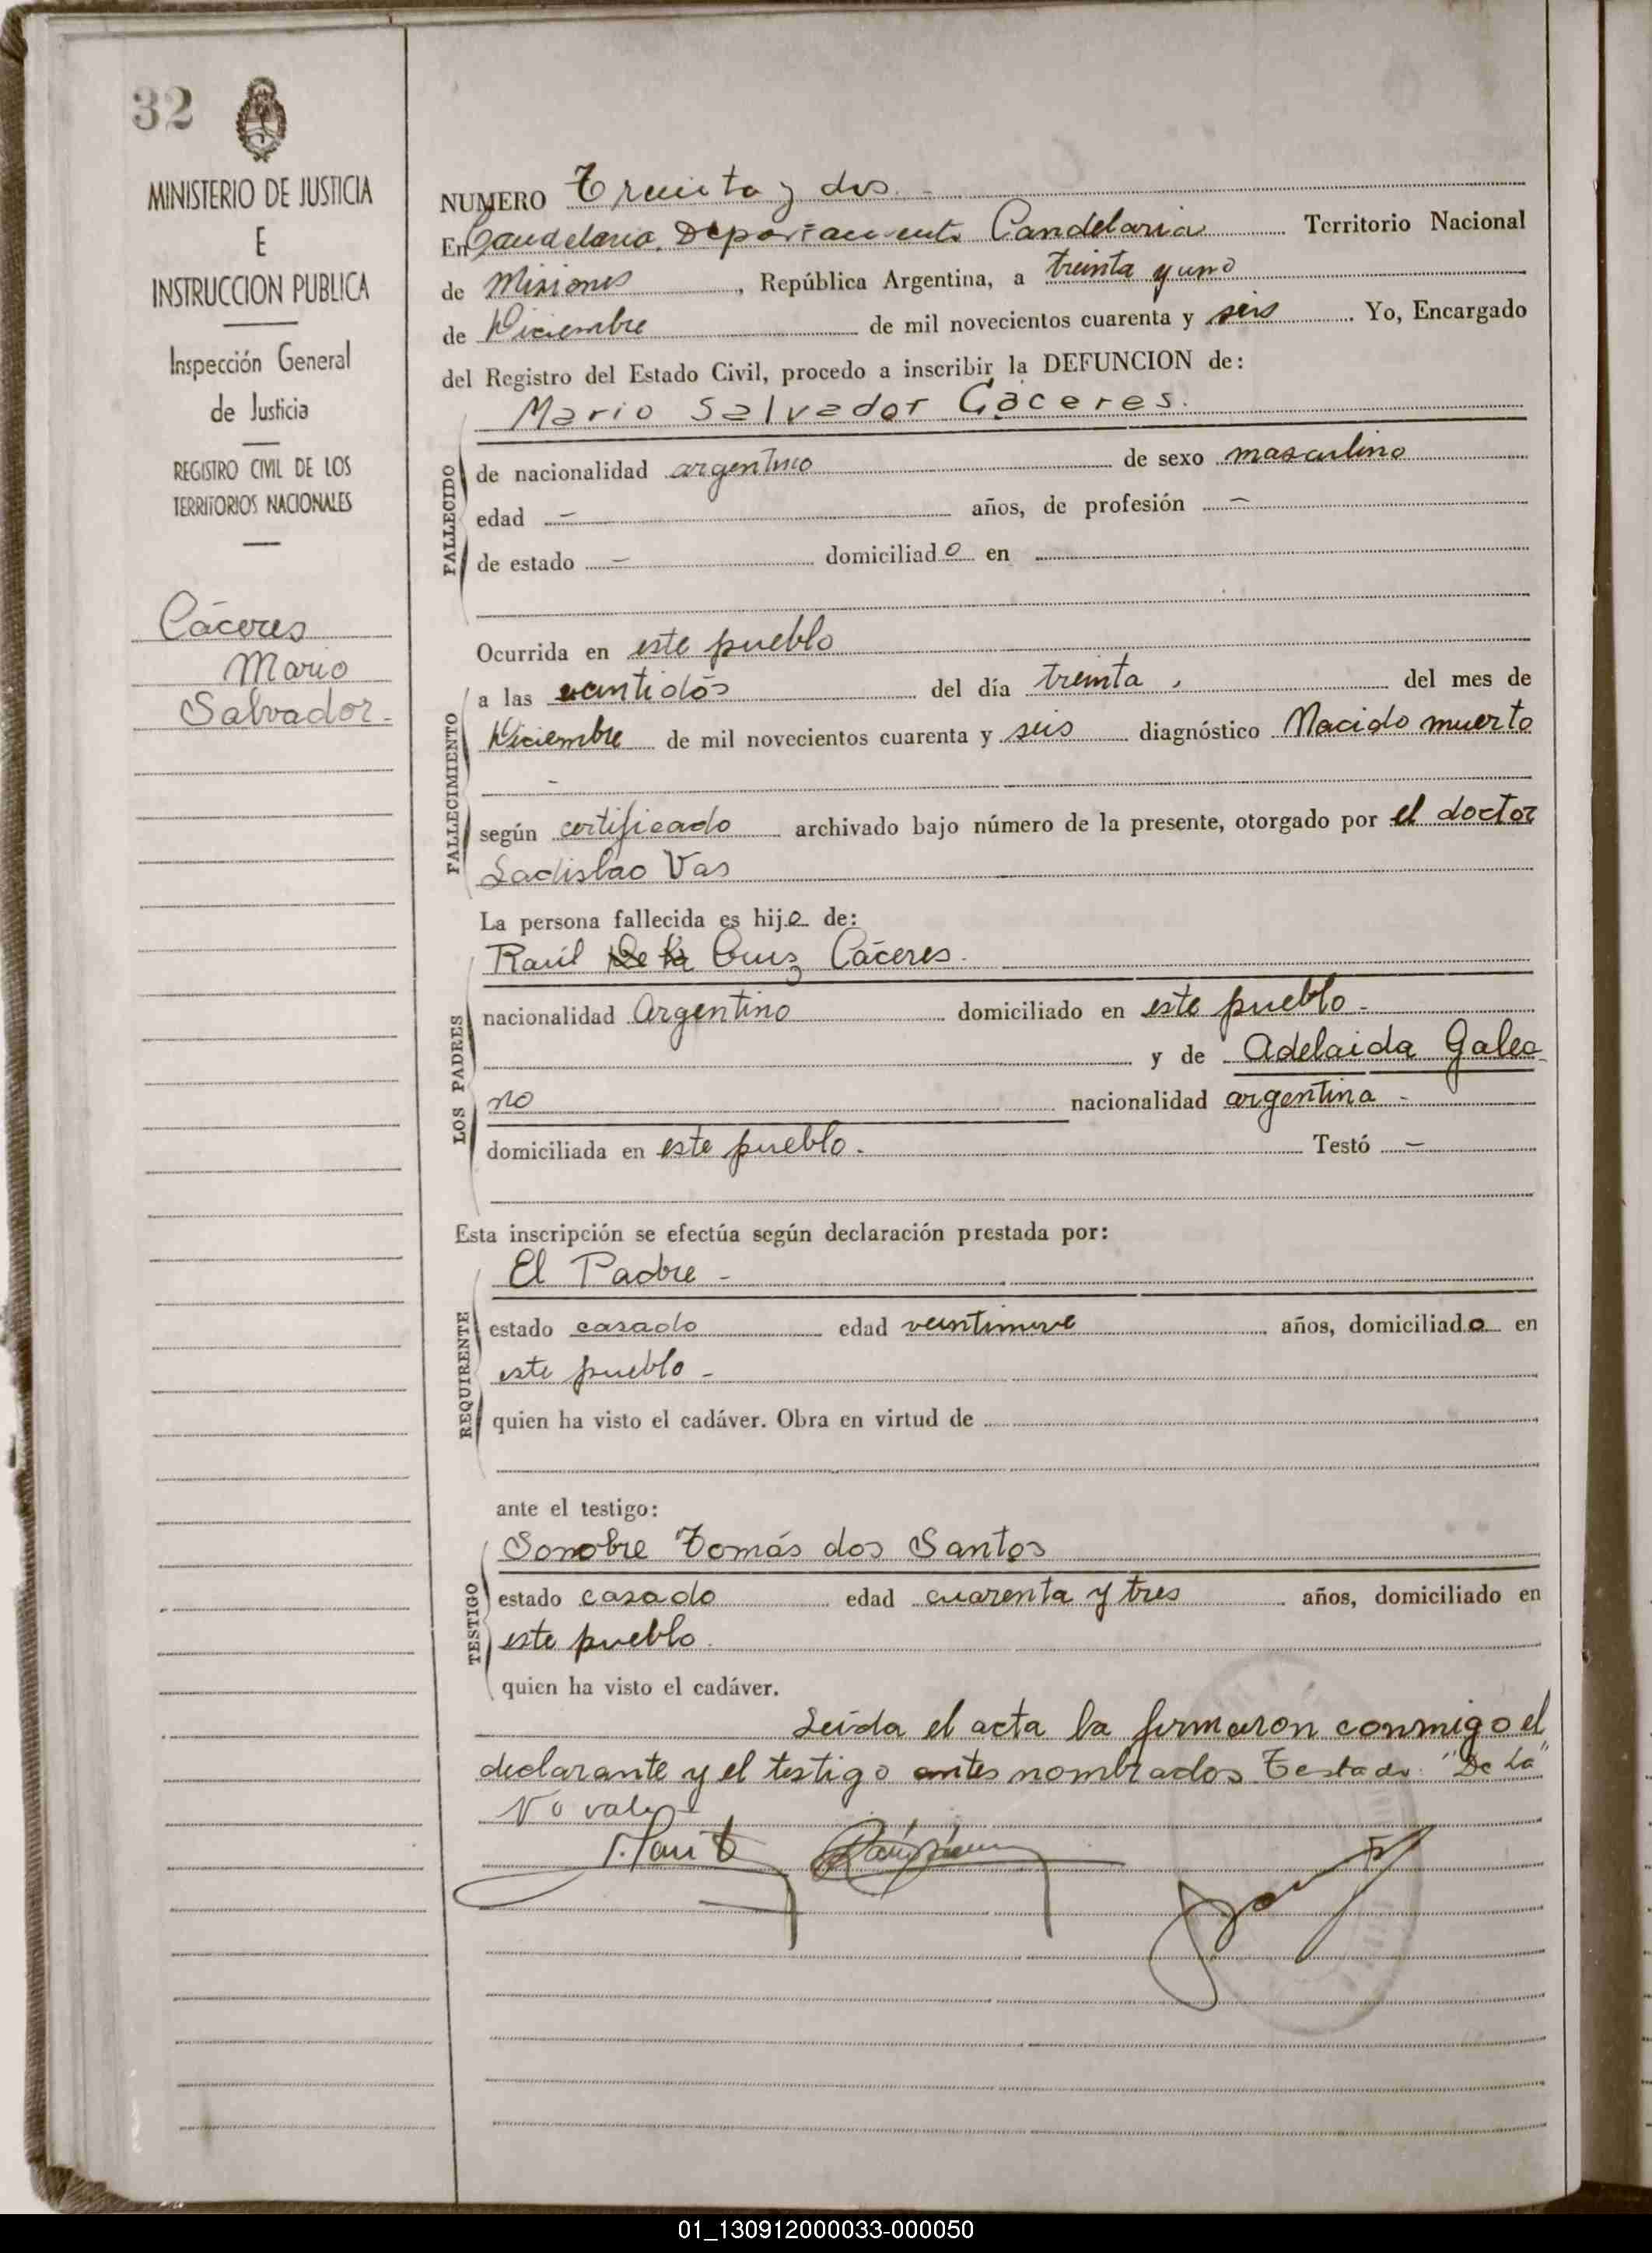 32
MINISTERIO DE JUSTICIA
E
INSTRUCCION PUBLICA
Inspección General
de Justicia
REGISTRO CIVIL DE LOS
TERRITORIOS NACIONALES
Cáceres
Mario
Salvador.-
NUMERO Treinta y dos.-
En Candelaria, Departamento Candelaria Territorio Nacional
de Misiones, República Argentina, a treinta y uno
de Diciembre de mil novecientos cuarenta y seis. Yo, Encargado
del Registro del Estado Civil, procedo a inscribir la DEFUNCION de:
Mario Salvador Cáceres.
FALLECIDO
de nacionalidad argentino de sexo masculino
edad - años, de profesión -
de estado - domiciliado en
Ocurrida en este pueblo
FALLECIMIENTO
a las veintidós del día treinta, del mes de
Diciembre de mil novecientos cuarenta y seis diagnóstico Nacido muerto
-
según certificado archivado bajo número de la presente, otorgado por el doctor
Ladislao Vas
La persona fallecida es hijo de:
LOS PADRES
Raúl De la Cruz Cáceres.
nacionalidad Argentino domiciliado en este pueblo.-
y de Adelaida Galea-
no nacionalidad argentina -
domiciliada en este pueblo. Testó -
Esta inscripción se efectúa según declaración prestada por:
REQUIRENTE
El Padre -
estado casado edad veintinueve años, domiciliado en
este pueblo -
quien ha visto el cadáver. Obra en virtud de
ante el testigo:
TESTIGO
Sonobre Tomás dos Santos
estado casado edad cuarenta y tres años, domiciliado en
este pueblo.
quien ha visto el cadáver.
Leída el acta la firmaron conmigo el
declarante y el testigo antes nombrados Testado: "De la"
No vale
01_130912000033-000050